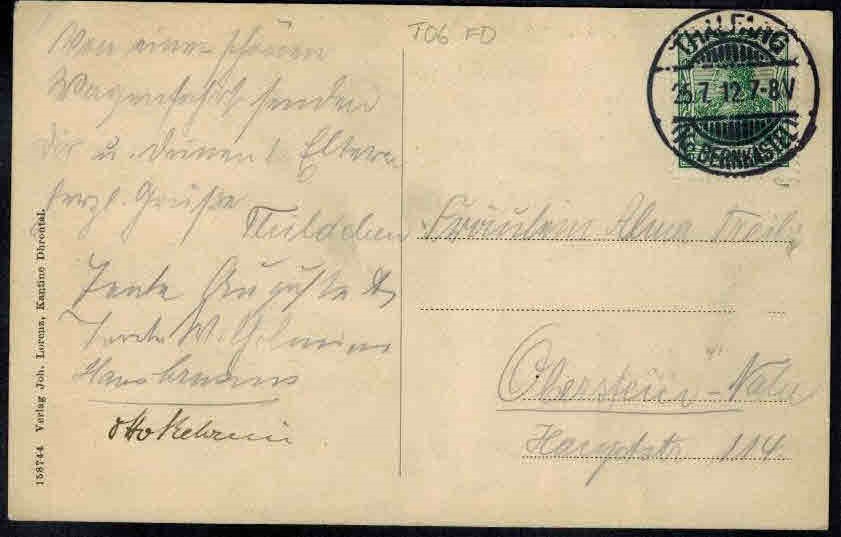 T06 FD
THALFANG
25.7.12.7-8V
(Bz. BERNKASTEL)
Von einer schönen
Wagenfahrt senden
Dir u. deinen l. Eltern
herzl. Grüße
Tante Auguste
Tante Wilhelmine
Hans
Otto
Fräulein Alma
Oberstein-Nahe
Hauptstr. 114.
158744 Verlag Joh. Lorenz, Kantine Dhrontal.